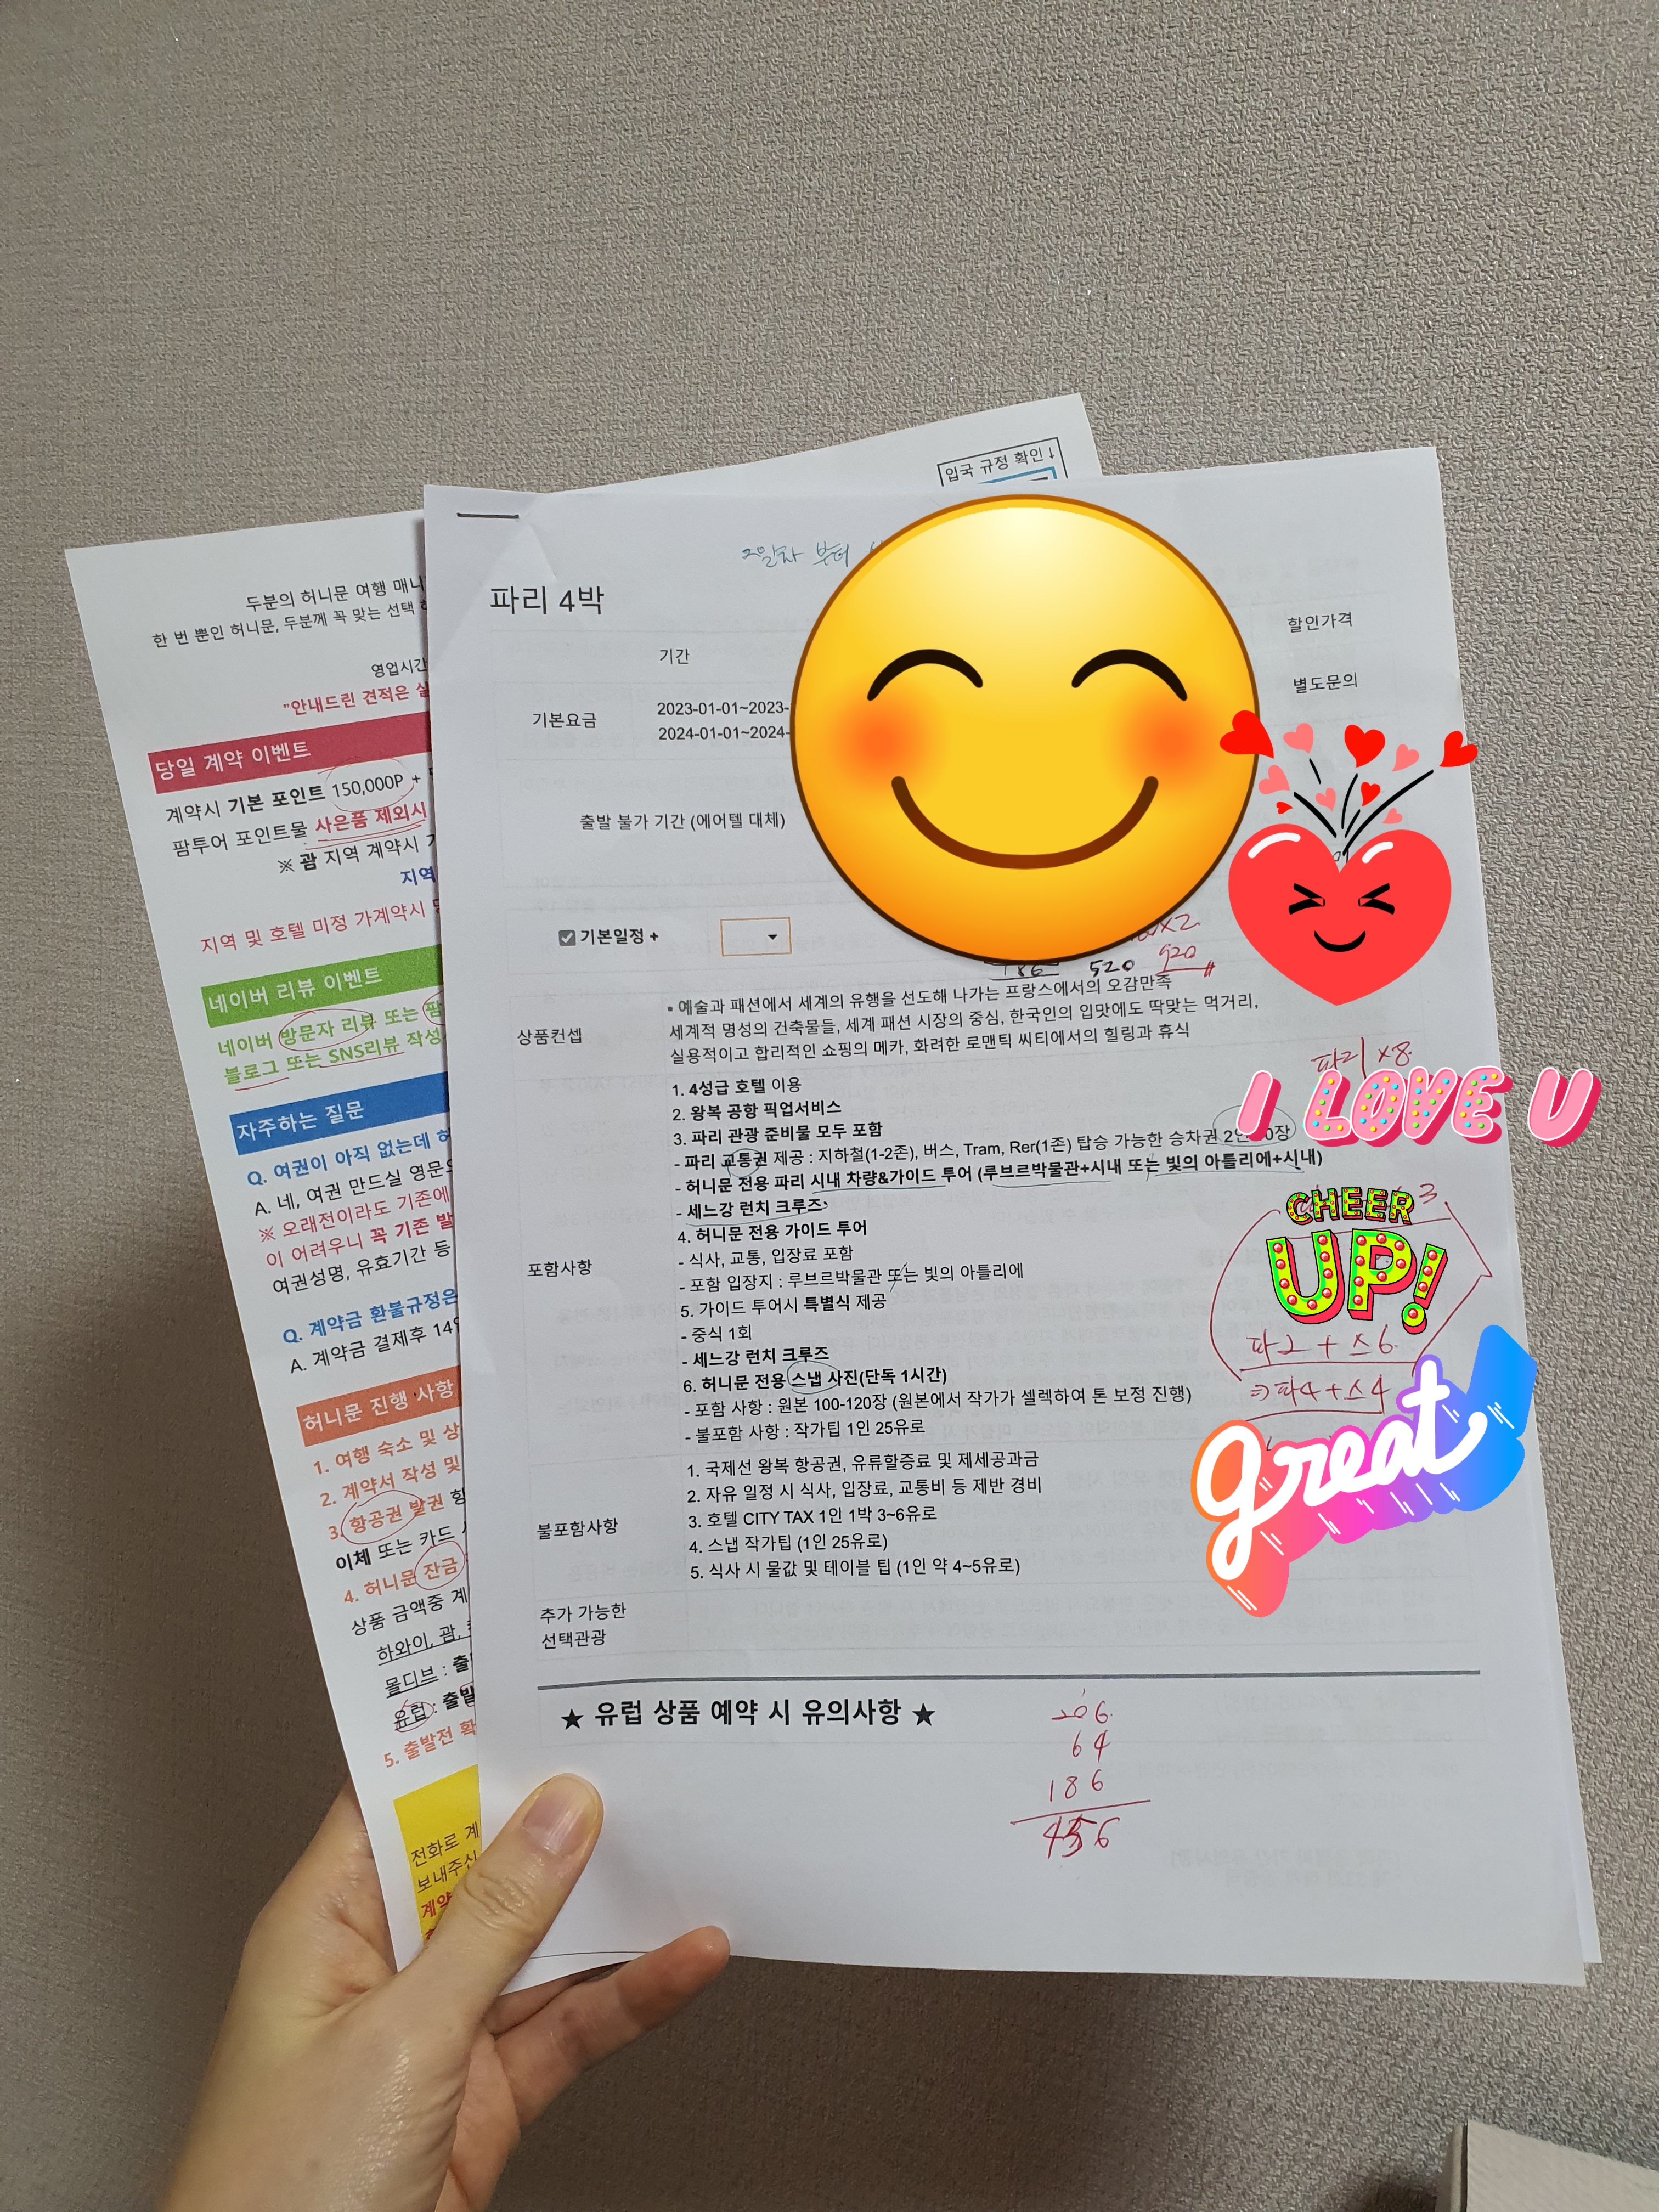 입국 규정 확인↓
두분의 허니문 여행 매니
한 번 뿐인 허니문, 두분께 꼭 맞는 선택
영업시간
"안내드린 견적은 실
당일 계약 이벤트
계약시 기본 포인트 150,000P +
팜투어 포인트몰 사은품 제외시
※ 괌 지역 계약시
지역
지역 및 호텔 미정 가계약시
네이버 리뷰 이벤트
네이버 방문자 리뷰 또는 팜
블로그 또는 SNS리뷰 작성
자주하는 질문
Q. 여권이 아직 없는데 허
A. 네, 여권 만드실 영문
※ 오래전이라도 기존에
이 어려우니 꼭 기존 발
여권성명, 유효기간 등
Q. 계약금 환불규정은
A. 계약금 결제후 14일
허니문 진행 사항
1. 여행 숙소 및 상
2. 계약서 작성 및
3. 항공권 발권 항
이체 또는 카드
4. 허니문 잔금
상품 금액중 계
하와이, 괌,
몰디브 : 출
유럽 : 출발
5. 출발전 확
전화로 계
보내주신
계약
2일차 부터
파리 4박
기간
할인가격
기본요금
2023-01-01~2023-
2024-01-01~2024-
별도문의
출발 불가 기간 (에어텔 대체)
기본일정 +
x2
186 520 920
상품컨셉
• 예술과 패션에서 세계의 유행을 선도해 나가는 프랑스에서의 오감만족
세계적 명성의 건축물들, 세계 패션 시장의 중심, 한국인의 입맛에도 딱맞는 먹거리,
실용적이고 합리적인 쇼핑의 메카, 화려한 로맨틱 씨티에서의 힐링과 휴식
파리 x8
I LOVE U
포함사항
1. 4성급 호텔 이용
2. 왕복 공항 픽업서비스
3. 파리 관광 준비물 모두 포함
- 파리 교통권 제공 : 지하철(1-2존), 버스, Tram, Rer(1존) 탑승 가능한 승차권 2인 0장
- 허니문 전용 파리 시내 차량&가이드 투어 (루브르박물관+시내 또는 빛의 아틀리에+시내)
- 세느강 런치 크루즈
4. 허니문 전용 가이드 투어
- 식사, 교통, 입장료 포함
- 포함 입장지 : 루브르박물관 또는 빛의 아틀리에
5. 가이드 투어시 특별식 제공
- 중식 1회
- 세느강 런치 크루즈
6. 허니문 전용 스냅 사진(단독 1시간)
- 포함 사항 : 원본 100-120장 (원본에서 작가가 셀렉하여 톤 보정 진행)
- 불포함 사항 : 작가팁 1인 25유로
3
CHEER
UP!
파2 + 스6
파4 + 스4
great
불포함사항
1. 국제선 왕복 항공권, 유류할증료 및 제세공과금
2. 자유 일정 시 식사, 입장료, 교통비 등 제반 경비
3. 호텔 CITY TAX 1인 1박 3~6유로
4. 스냅 작가팁 (1인 25유로)
5. 식사 시 물값 및 테이블 팁 (1인 약 4~5유로)
추가 가능한
선택관광
★ 유럽 상품 예약 시 유의사항 ★
206
64
186
456